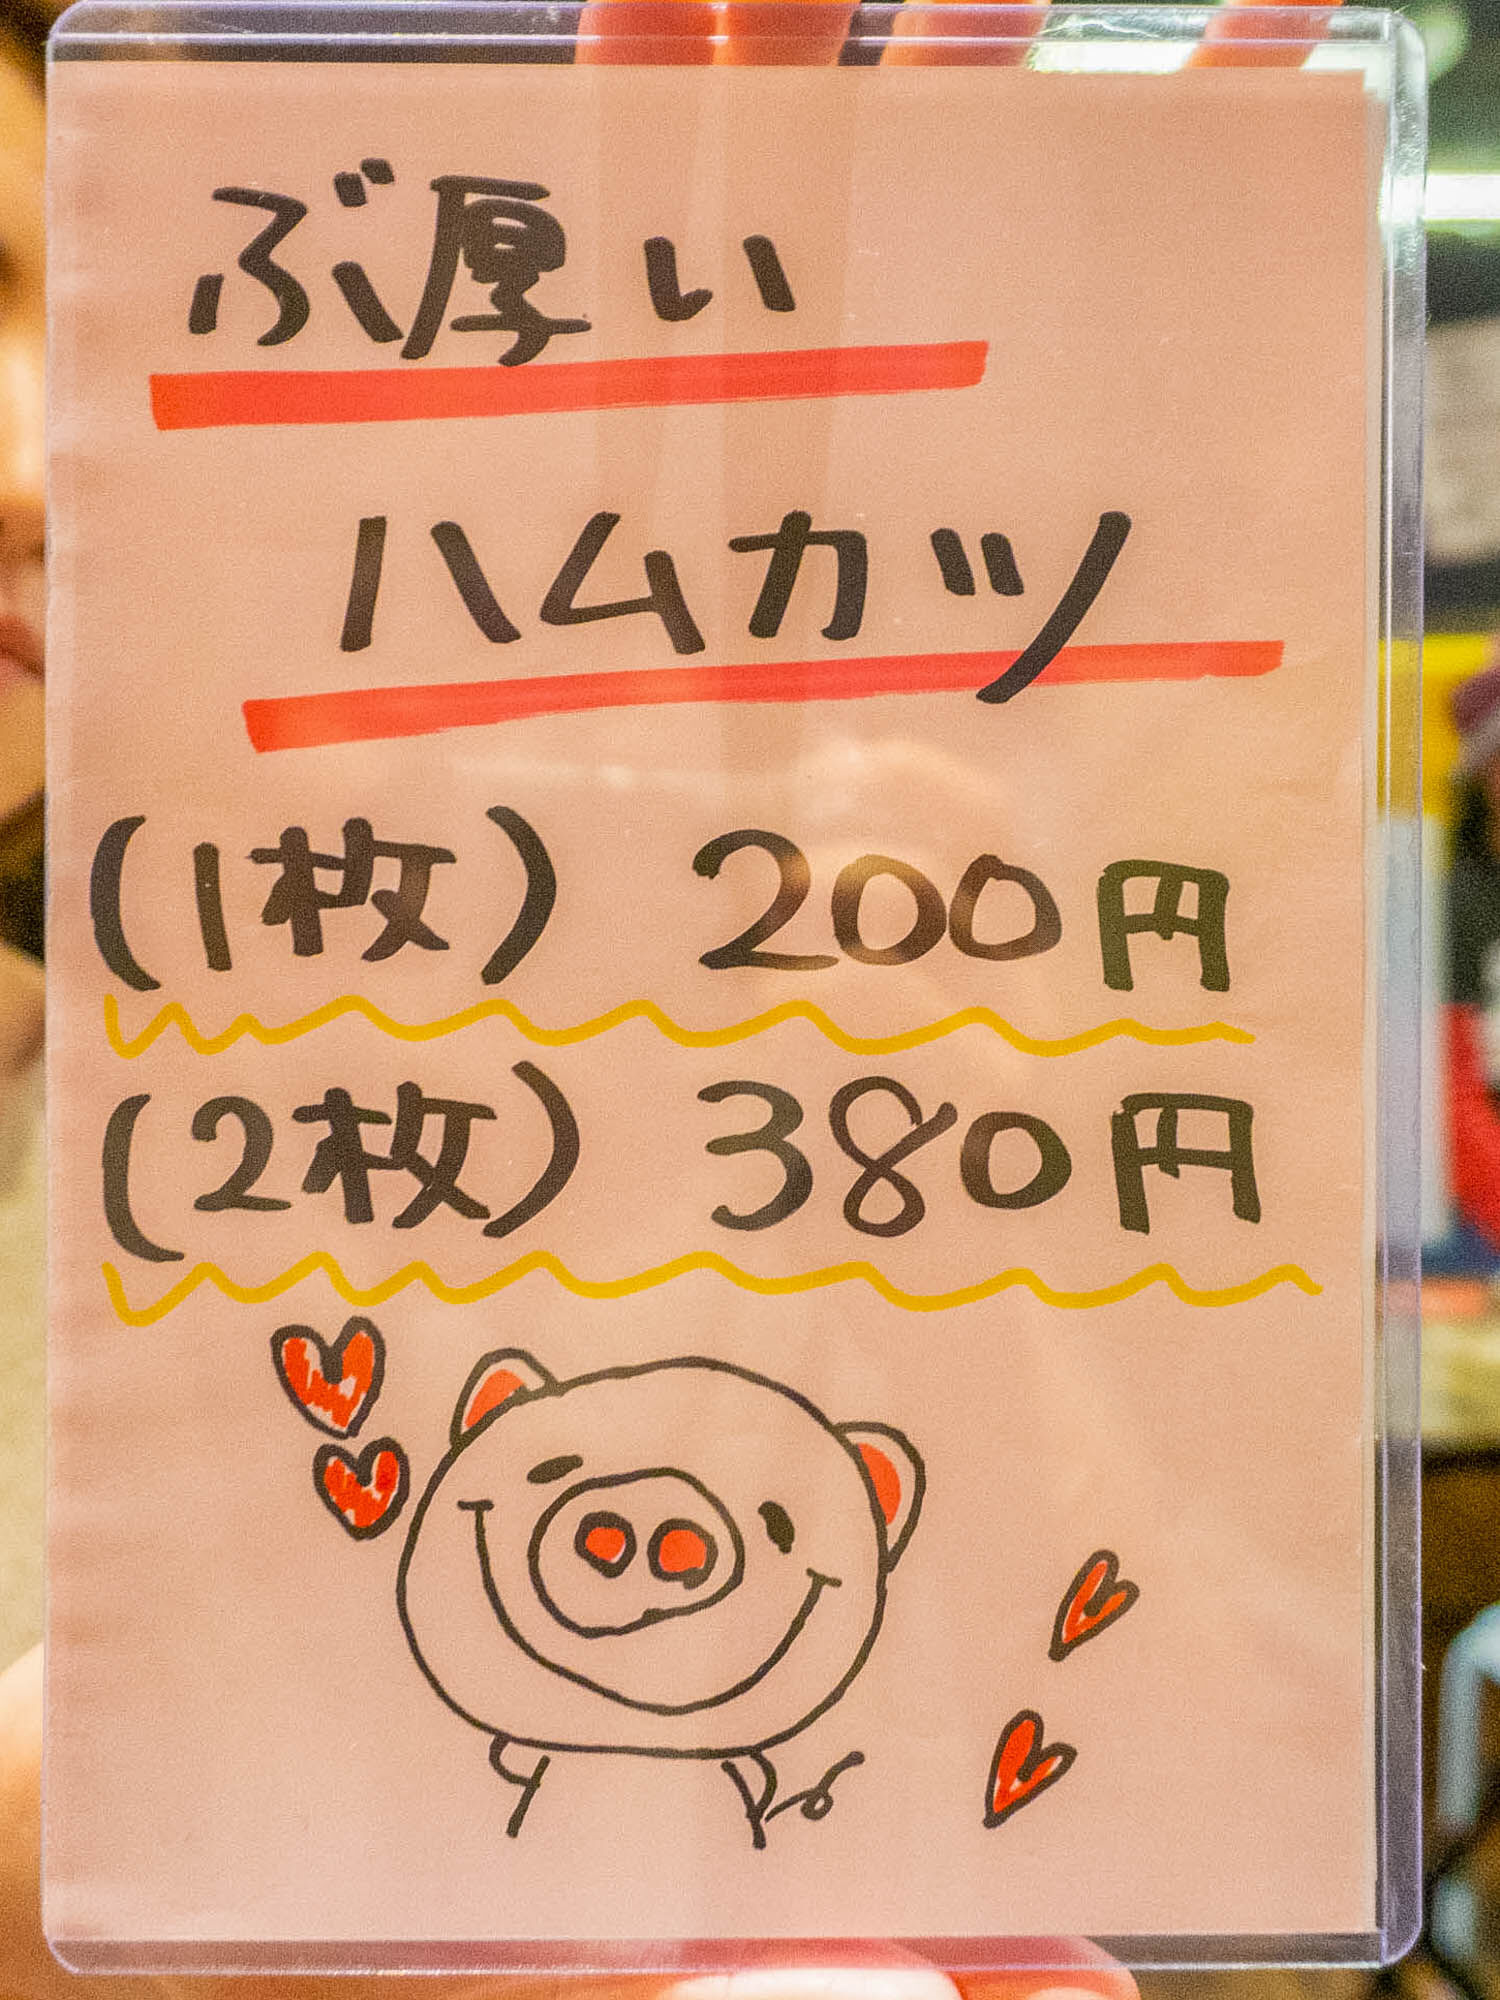 ぶ厚い
ハムカツ
(1枚) 200円
(2枚) 380円